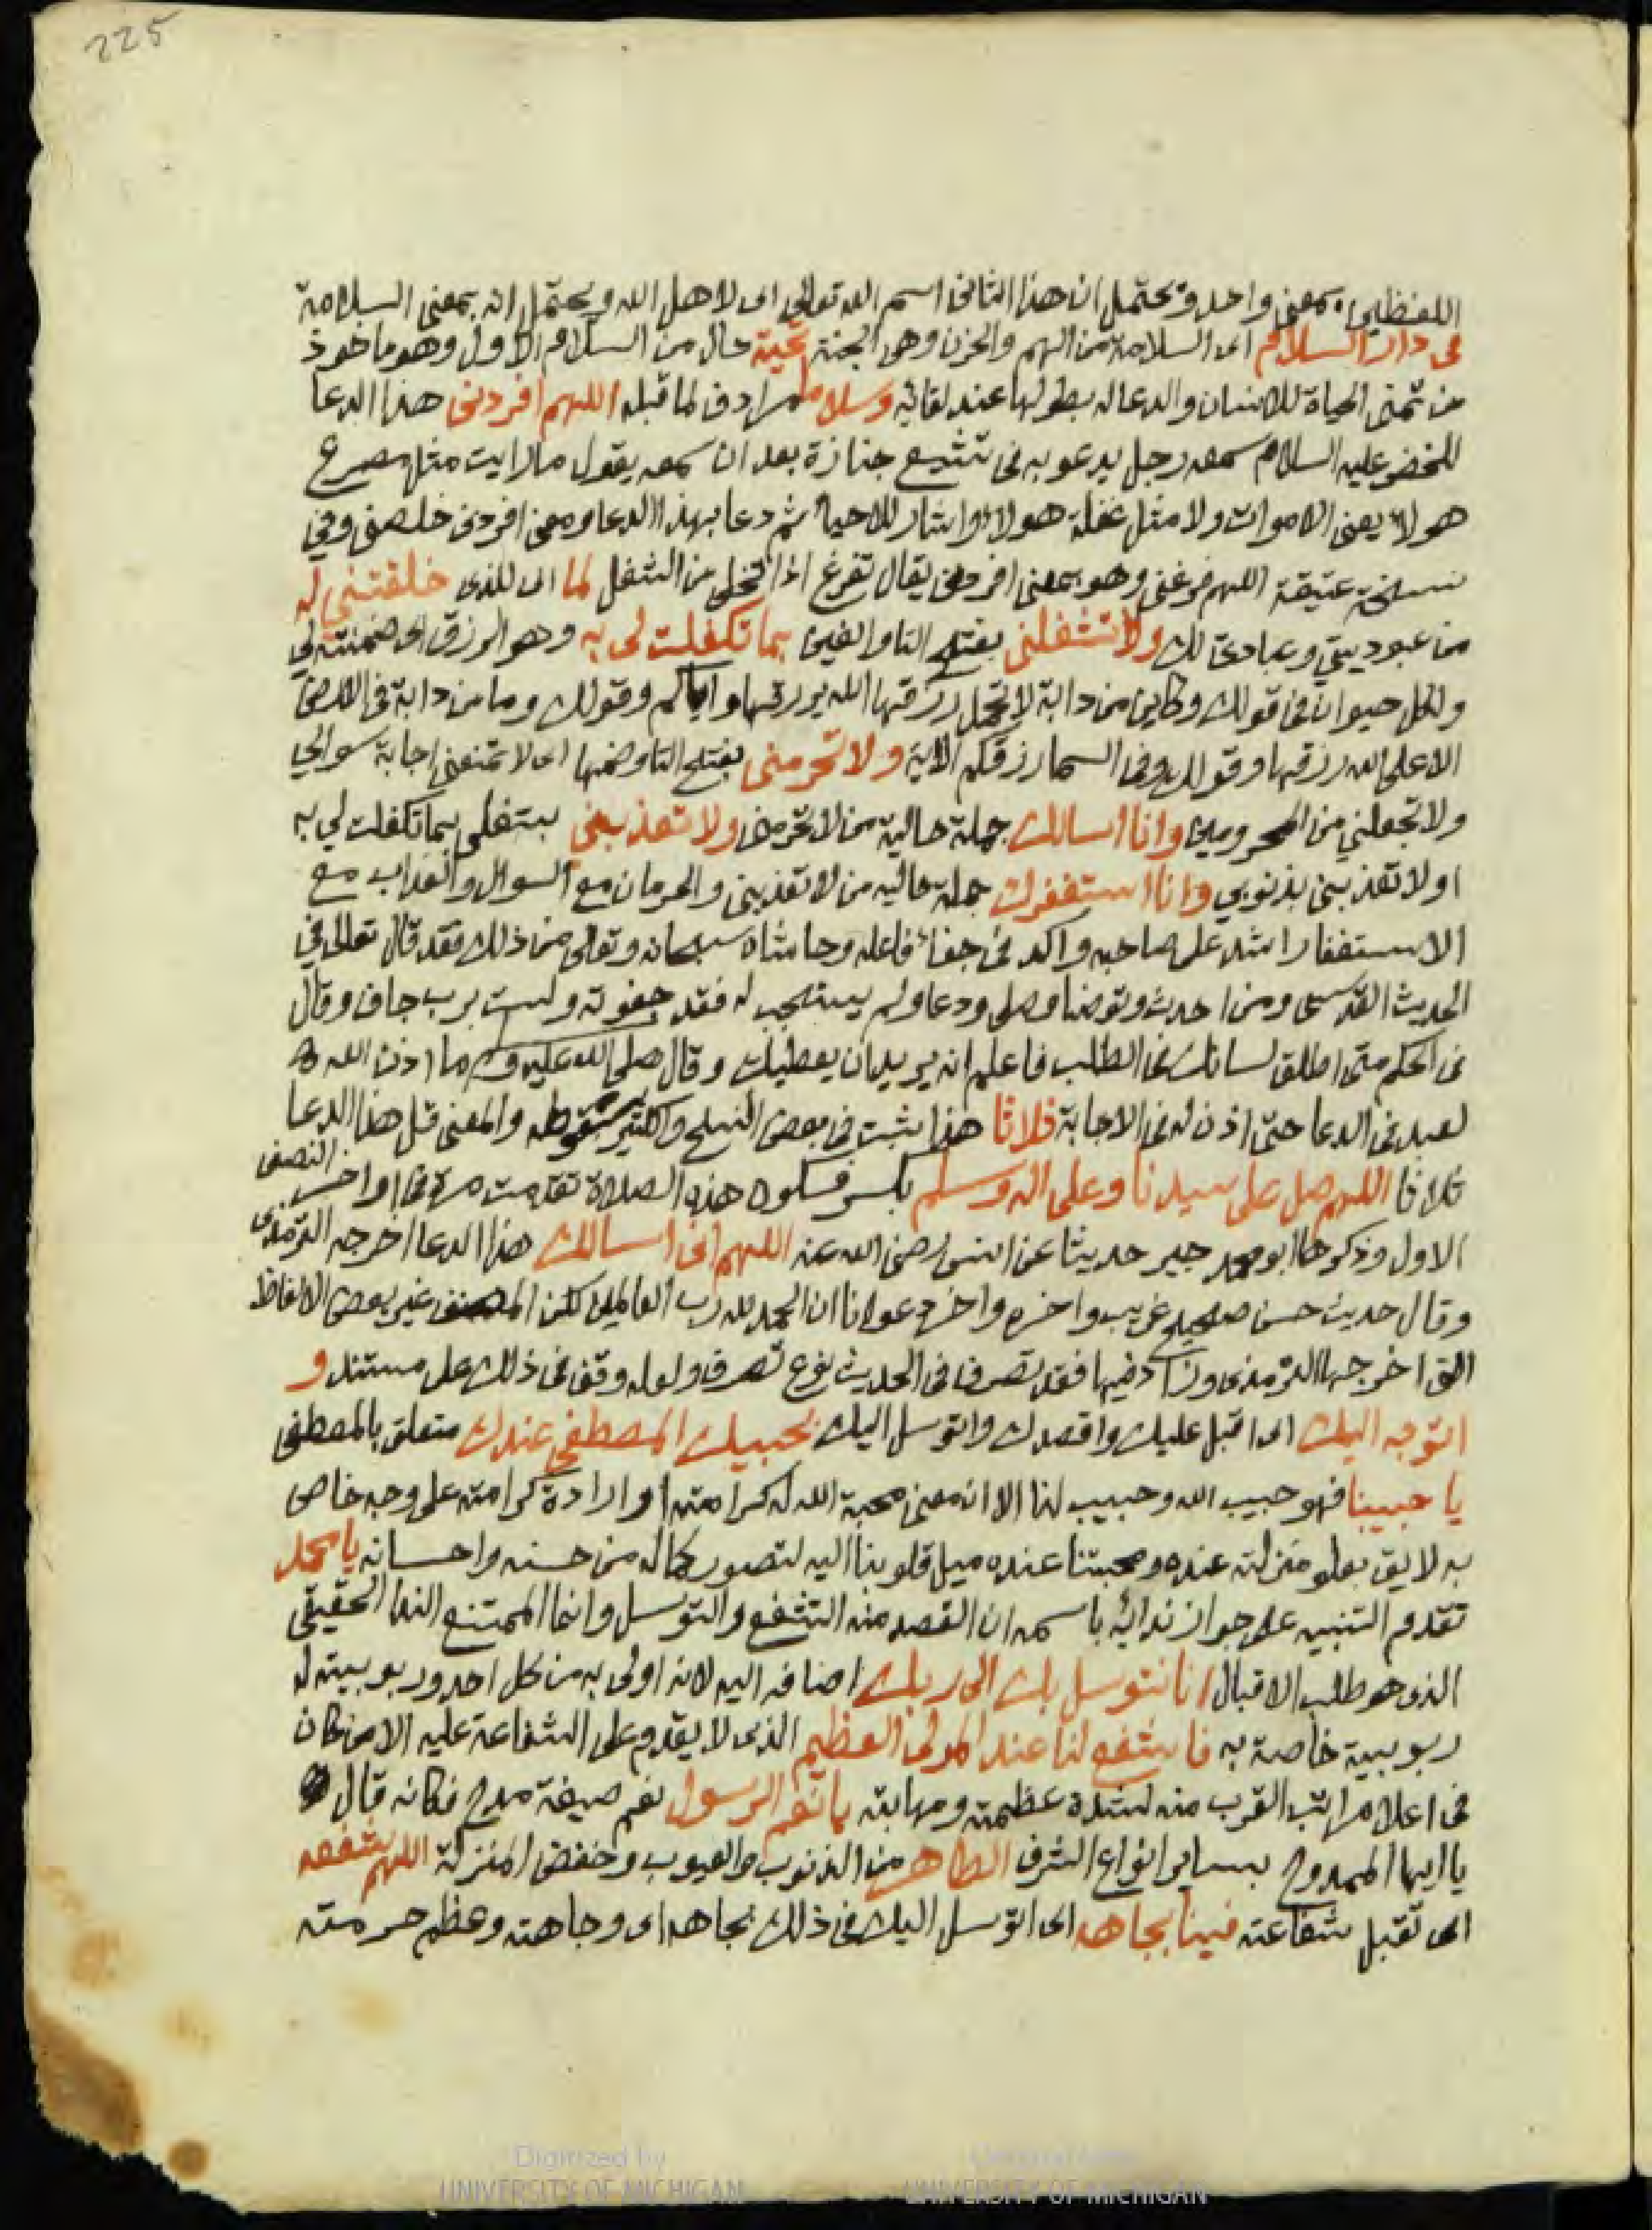 225
اللفظين بمعنى واحد ويحتمل ان هذا الثاني اسم الله تعالى اى لاهل الله ويحتمل انه بمعنى السلامة
فى دار السلام اى السلامة من الهم والحزن وهى الجنة تحية حال من السلام الاول وهو ماخوذ
من تمنى الحياة للانسان والدعا له بطولها عند لقائه وسلاما مرادف لما قبله اللهم افردنى هذا الدعا
للخضر عليه السلام سمعه رجل يدعو به فى تشييع جنازة بعد ان سمعه يقول ما رايت مثل مصرع
هولا يعنى الاموات ولا مثل غفلة هولا واشار للاحيا ثم دعا بهذا الدعا ومعنى افردنى خلصنى وفي
نسخة عتيقة اللهم فرغنى وهو بمعنى افردنى يقال تفرغ اذا تخلى من الشغل لما اى للذى خلقتنى له
من عبوديتي وعبادتى لك ولا تشغلنى بفتح التا والغين بما تكفلت لى به وهو الرزق اى ضمنته لي
ولكل حيوان فى قولك وكاين من دابة لا تحمل رزقها الله يرزقها واياكم وقولك وما من دابة فى الارض
الا على الله رزقها وقولك وفى السما رزقكم الاية ولا تحرمنى بفتح التا وضمها اى لا تمنعنى اجابة سوالي
ولا تجعلني من المحرومين وانا اسالك جملة حالية من لا تحرمنى ولا تعذبنى بشغلى بما تكفلت لي به
او لا تعذبنى بذنوبي وانا استغفرك جملة حاليه من لا تعذبنى والحرمان مع السوال والعذاب مع
الاستغفار اشد على صاحبه واكد فى جفا فاعله وحاشاه سبحانه وتعالى من ذلك فقد قال تعالى في
الحديث القدسى ومن احدث وتوضا وصلى ودعا ولم يستجب له فقد جفوته ولست برب جاف وقال
فى الحكم متى اطلق لسانك فى الطلب فاعلم انه يريد ان يعطيك وقال صلى الله عليه وسلم ما اذن الله
لعبد فى الدعا حتى اذن له فى الاجابة ثلاثا هذا يثبت فى بعض النسخ واكثر سقوطه والمعنى قل هذا الدعا
ثلاثا اللهم صل على سيدنا وعلى اله وسلم بكسر فسكون هذه الصلاة تقدمت مرة فى اواخر النصف
الاول وذكرها ابو محمد جبر حديثا عن انس رضى الله عنه اللهم انى اسالك هذا الدعا اخرجه الترمذى
وقال حديث حسن صحيح غريب واخره واخر دعوانا ان الحمد لله رب العالمين لكن المصنف غير بعض الالفاظ
التى اخرجها الترمذى وزاد فيها فقد تصرف فى الحديث نوع تصرف ولعله وقف فى ذلك على مستند و
اتوجه اليك اى اقبل عليك واقصدك واتوسل اليك بحبيبك المصطفى عندك متعلق بالمصطفى
يا حبيبنا فهو حبيب الله وحبيب لنا الا ان معنى محبة الله له كرامته او ارادة كرامته على وجه خاص
به لايق بعلو منزلته عنده ومحبتنا عنده ميل قلوبنا اليه لتصور كماله من حسنه واحسانه يا محمد
تقدم التنبيه على جواز ندائه باسمه ان القصد منه التشفع والتوسل وانما الممتنع الندا الحقيقي
الذى هو طلب الاقبال انا نتوسل بك الى ربك اضافه اليه لانه اولى به من كل احد وربوبيته له
ربوبية خاصة به فاشفع لنا عند المولى العظيم الذى لا يقدم على الشفاعة عليه الا من كان
فى اعلا مراتب القرب منه لشدة عظمته ومهابته يا نعم الرسول نعم صيغة مدح فكانه قال
يا ايها الممدوح بساير انواع الشرف الطاهر من الذنوب والعيوب وخفض المنزلة اللهم شفعه
اى تقبل شفاعته فينا بجاهه اى اتوسل اليك فى ذلك بجاهه اى وجاهته وعظم حرمته
Digitized by
UNIVERSITY OF MICHIGAN
UNIVERSITY OF MICHIGAN